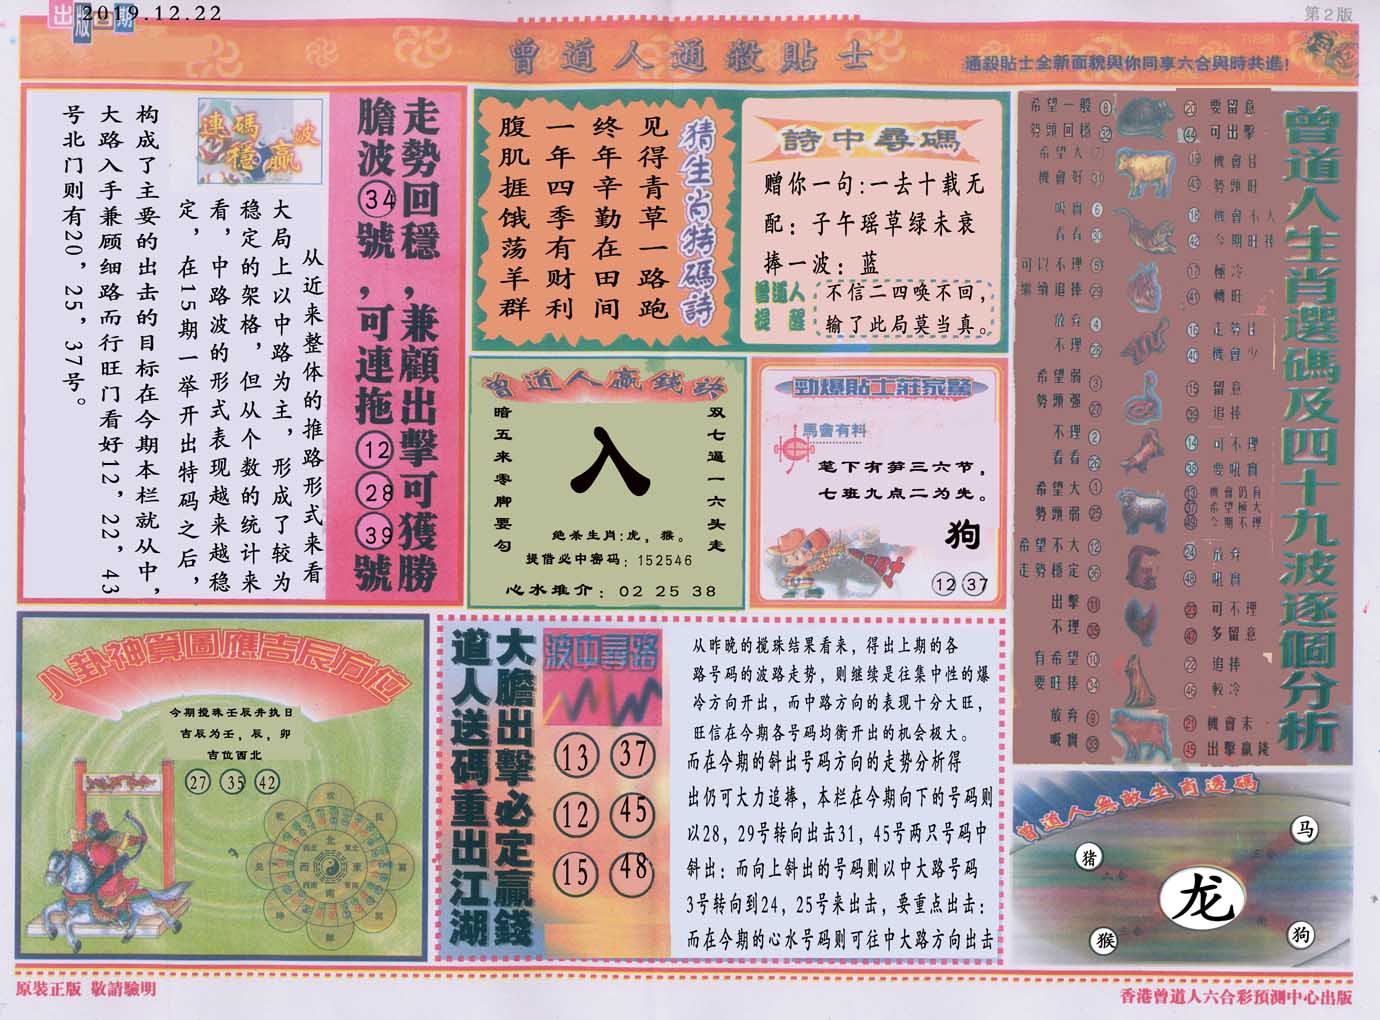 出版日期
2019.12.22
第2版
曾道人通殺貼士
通殺貼士全新面貌與你同享六合與時共進!
走勢回穩,兼顧出擊可獲勝
膽波34號,可連拖12 28 39號
連碼穩贏波
从近来整体的推路形式来看
大局上以中路为主,形成了较为
稳定的架格,但从个数的统计来
看,中路波的形式表现越来越稳
定,在15期一举开出特码之后,
构成了主要的出击的目标在今期本栏就从中,
大路入手兼顾细路而行旺门看好12,22,43
号北门则有20,25,37号。
猜生肖特碼詩
见得青草一路跑
终年辛勤在田间
一年四季有财利
腹肌捱饿荡羊群
詩中尋碼
赠你一句:一去十载无
配:子午瑶草绿未衰
捧一波:蓝
曾道人提醒
不信二四唤不回,
输了此局莫当真。
曾道人贏錢詩
双七逼一六头走
暗五来零脚要勾
入
绝杀生肖:虎,猴。
提借必中密码:152546
心水推介:02 25 38
勁爆貼士莊家驚
馬會有料
笔下有笋三六节,
七班九点二为先。
狗
12 37
曾道人生肖選碼及四十九波逐個分析
希望一般 8
勢頭回穩 32
希望大 7
機會好 31
吸實 6
看看 30
可以不理 5
繼續追捧 29
放弃 4
不理 28
希望弱 3
勢頭强 27
不理 2
看看 26
希望大 1
勢頭弱 25
希望不大 12
走勢穩定 36
出擊 11
不理 35
有希望 10
要旺捧 34
放弃 9
吸實 33
20 要留意
44 可出擊
19 機會佳
43 勢頭旺
18 機會不大
42 今期旺捧
17 極冷
41 轉旺
16 走勢佳
40 機會少
15 留意
39 追捧
14 可不理
38 要吸實
13 機會仍有
37 希望極大
49 今期不理
24 放弃
48 吸實
23 可不理
47 多留意
22 追捧
46 較冷
21 機會末
45 出擊贏錢
八卦神算圖應吉辰方位
今期搅珠壬辰井执日
吉辰为壬,辰,卯
吉位西北
27 35 42
北
東
南
西
大膽出擊必定贏錢
道人送碼重出江湖
波中尋路
13 37
12 45
15 48
从昨晚的搅珠结果看来,得出上期的各
路号码的波路走势,则继续是往集中性的爆
冷方向开出,而中路方向的表现十分大旺,
旺信在今期各号码均衡开出的机会极大。
而在今期的斜出号码方向的走势分析得
出仍可大力追捧,本栏在今期向下的号码则
以28,29号转向出击31,45号两只号码中
斜出:而向上斜出的号码则以中大路号码
3号转向到24,25号来出击,要重点出击:
而在今期的心水号码则可往中大路方向出击
曾道人無敵生肖透碼
马
猪
龙
猴
狗
原裝正版 敬請驗明
香港曾道人六合彩預測中心出版